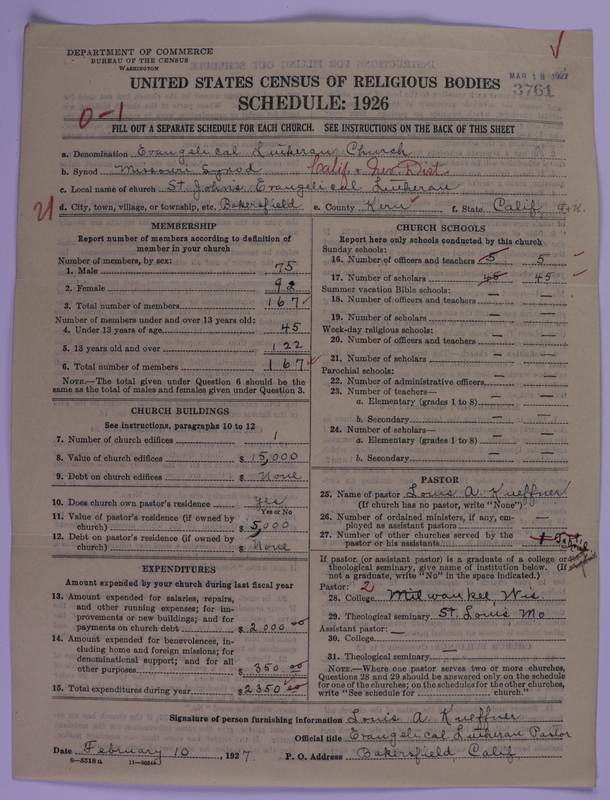 DEPARTMENT OF COMMERCE
BUREAU OF THE CENSUS
WASHINGTON
UNITED STATES CENSUS OF RELIGIOUS BODIES
MAR 18 1927
3761
SCHEDULE: 1926
0-1
FILL OUT A SEPARATE SCHEDULE FOR EACH CHURCH. SEE INSTRUCTIONS ON THE BACK OF THIS SHEET
a. Denomination Evangelical Lutheran Church
b. Synod Missouri Synod Calif. & Nev. Dist.
c. Local name of church St. Johns Evangelical Lutheran
d. City, town, village, or township, etc. Bakersfield e. County Kern f. State Calif.
MEMBERSHIP
Report number of members according to definition of
member in your church
Number of members, by sex:
1. Male 75
2. Female 92
3. Total number of members 167
Number of members under and over 13 years old:
4. Under 13 years of age 45
5. 13 years old and over 122
6. Total number of members 167
NOTE.—The total given under Question 6 should be the
same as the total of males and females given under Question 3.
CHURCH BUILDINGS
See instructions, paragraphs 10 to 12
7. Number of church edifices 1
8. Value of church edifices $ 15,000
9. Debt on church edifices $ None
10. Does church own pastor's residence yes
Yes or No
11. Value of pastor's residence (if owned by
church) $ 5,000
12. Debt on pastor's residence (if owned by
church) $ None
EXPENDITURES
Amount expended by your church during last fiscal year
13. Amount expended for salaries, repairs,
and other running expenses; for im-
provements or new buildings; and for
payments on church debt $ 2000 00
14. Amount expended for benevolences, in-
cluding home and foreign missions; for
denominational support; and for all
other purposes $ 350 00
15. Total expenditures during year $ 2350 00
CHURCH SCHOOLS
Report here only schools conducted by this church
Sunday schools:
16. Number of officers and teachers 5 5
17. Number of scholars 45 45
Summer vacation Bible schools:
18. Number of officers and teachers — —
19. Number of scholars — —
Week-day religious schools:
20. Number of officers and teachers — —
21. Number of scholars — —
Parochial schools:
22. Number of administrative officers — —
23. Number of teachers—
a. Elementary (grades 1 to 8) — —
b. Secondary — —
24. Number of scholars—
a. Elementary (grades 1 to 8) — —
b. Secondary — —
PASTOR
25. Name of pastor Louis A. Kueffner
(If church has no pastor, write "None")
26. Number of ordained ministers, if any, em-
ployed as assistant pastors —
27. Number of other churches served by the
pastor or his assistants 1
If pastor (or assistant pastor) is a graduate of a college or
theological seminary, give name of institution below. (If
not a graduate, write "No" in the space indicated.)
Pastor: 2
28. College Milwaukee, Wis.
29. Theological seminary St. Louis Mo
Assistant pastor: —
30. College
31. Theological seminary
NOTE.—Where one pastor serves two or more churches,
Questions 28 and 29 should be answered only on the schedule
for one of the churches; on the schedules for the other churches,
write "See schedule for church."
Signature of person furnishing information Louis A. Kueffner
Official title Evangelical Lutheran Pastor
Date February 10, 1927. P. O. Address Bakersfield, Calif.
8-5318a